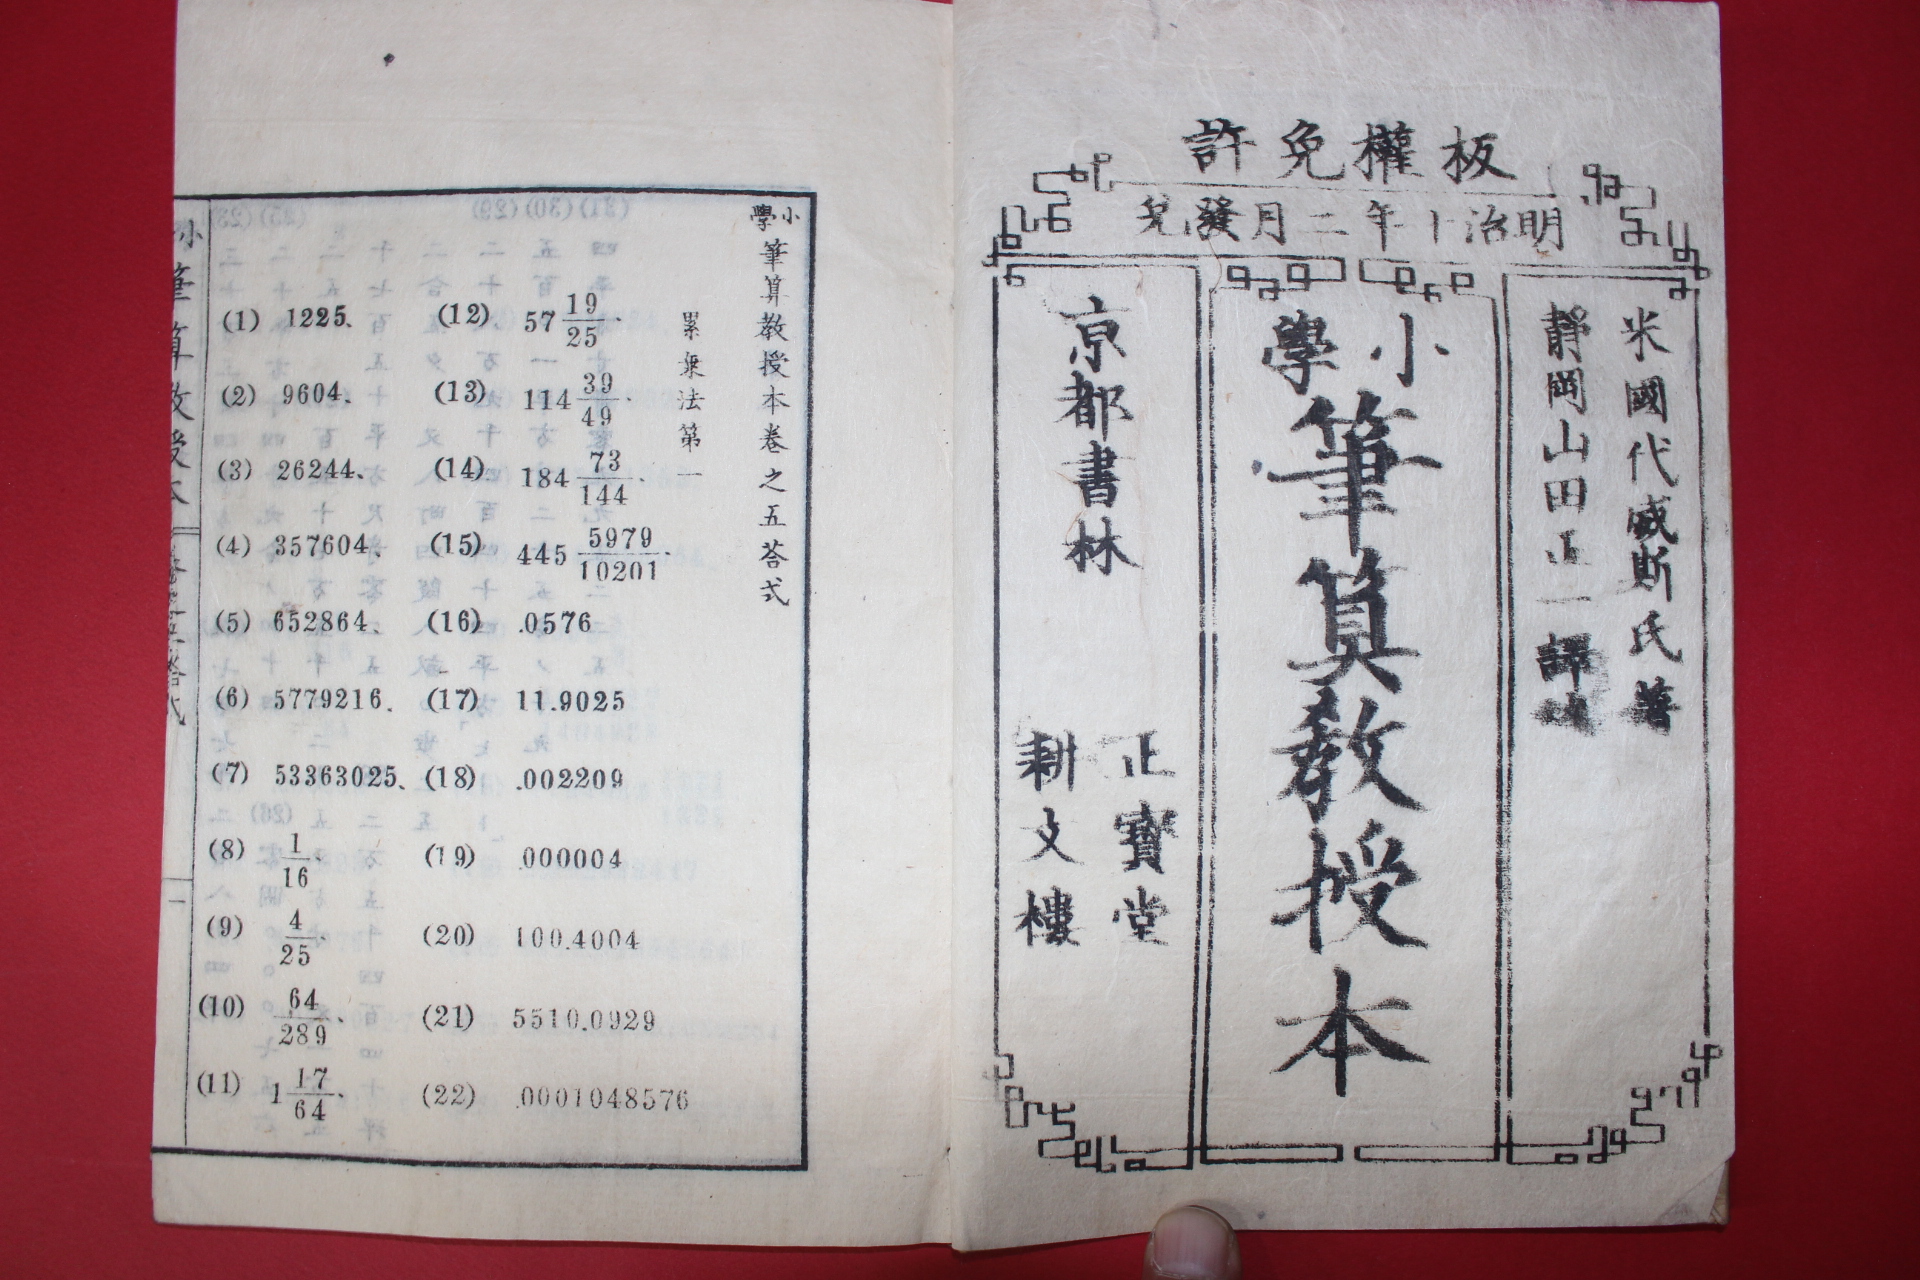 板權免許
明治十年二月發兌
米國代威斯氏著
靜岡山田正一譯
小學筆算教授本
京都書林
正寶堂
耕文樓
小學筆算教授本卷之五荅式
累乗法第一
(12) 57 19/25.
(13) 114 39/49.
(14) 184 73/144.
(15) 445 5979/10201.
(16) .0576
(17) 11.9025
(18) .002209
(19) .000004
(20) 100.4004
(21) 5510.0929
(22) .0001048576
(1) 1225、
(2) 9604、
(3) 26244、
(4) 357604、
(5) 652864、
(6) 5779216、
(7) 53363025、
(8) 1/16、
(9) 4/25、
(10) 64/289、
(11) 1 17/64、